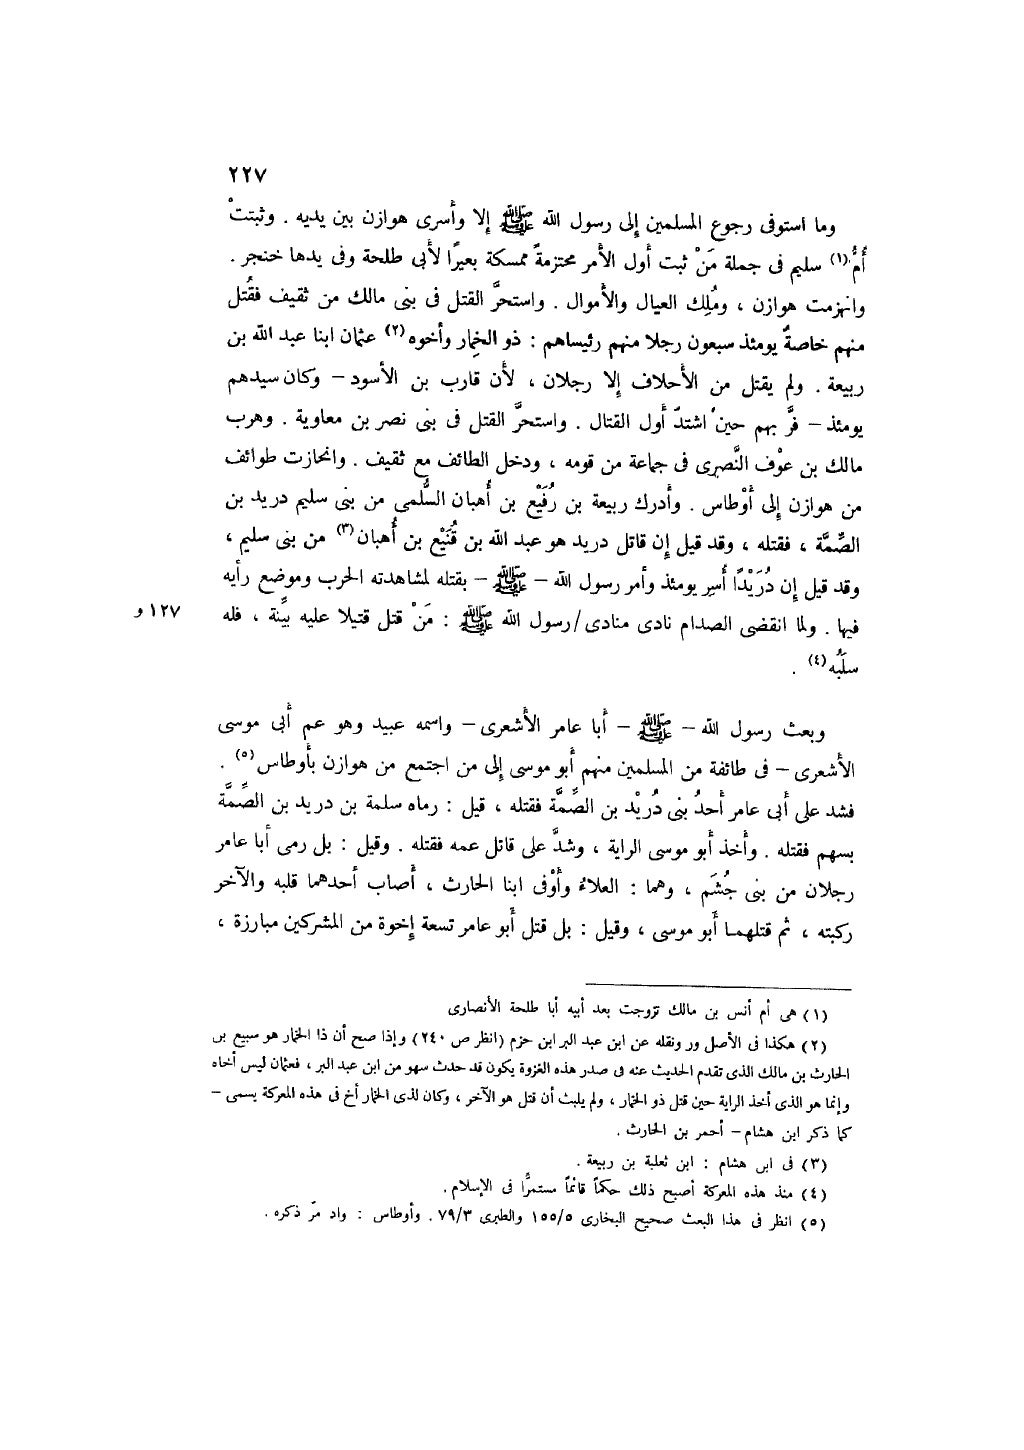 ٢٢٧
وما استوفى رجوع المسلمين إلى رسول الله ﷺ إلا وأسرى هوازن بين يديه . وثبتتْ
أُمُّ(١) سليم فى جملة مَنْ ثبت أول الأمر محتزمةً ممسكة بعيرًا لأبى طلحة وفى يدها خنجر .
وانهزمت هوازن ، ومُلِك العيال والأموال . واستحرَّ القتل فى بنى مالك من ثقيف فقُتل
منهم خاصةً يومئذ سبعون رجلا منهم رئيساهم : ذو الخِمار وأخوه(٢) عثمان ابنا عبد الله بن
ربيعة . ولم يقتل من الأحلاف إلا رجلان ، لأن قارب بن الأسود – وكان سيدهم
يومئذ – فرَّ بهم حين اشتدّ أول القتال . واستحرَّ القتل فى بنى نصر بن معاوية . وهرب
مالك بن عوْف النَّصرى فى جماعة من قومه ، ودخل الطائف مع ثقيف . وانحازت طوائف
من هوازن إلى أوْطاس . وأدرك ربيعة بن رُفَيْع بن أُهبان السُّلمى من بنى سليم دريد بن
الصِّمَّة ، فقتله ، وقد قيل إن قاتل دريد هو عبد الله بن قُنَيْع بن أُهبان(٣) من بنى سليم ،
وقد قيل إن دُرَيْدًا أُسِر يومئذ وأمر رسول الله – ﷺ – بقتله لمشاهدته الحرب وموضع رأيه
فيها . ولما انقضى الصدام نادى منادى/رسول الله ﷺ : مَنْ قتل قتيلا عليه بيِّنة ، فله
١٢٧ و
سلَبُه(٤) .
وبعث رسول الله – ﷺ – أبا عامر الأشعرى – واسمه عبيد وهو عم أبى موسى
الأشعرى – فى طائفة من المسلمين منهم أبو موسى إلى من اجتمع من هوازن بأوطاس(٥) .
فشد على أبى عامر أحدُ بنى دُريْد بن الصِّمَّة فقتله ، قيل : رماه سلمة بن دريد بن الصِّمَّة
بسهم فقتله . وأخذ أبو موسى الراية ، وشدَّ على قاتل عمه فقتله . وقيل : بل رمى أبا عامر
رجلان من بنى جُشَم ، وهما : العلاءُ وأوْفى ابنا الحارث ، أصاب أحدهما قلبه والآخر
ركبته ، ثم قتلهمـا أبو موسى ، وقيل : بل قتل أبو عامر تسعة إخوة من المشركين مبارزة ،
(١) هى أم أنس بن مالك تزوجت بعد أبيه أبا طلحة الأنصارى
(٢) هكذا فى الأصل ور ونقله عن ابن عبد البر ابن حزم (انظر ص ٢٤٠) وإذا صح أن ذا الخمار هو سبيع بن
الحارث بن مالك الذى تقدم الحديث عنه فى صدر هذه الغزوة يكون قد حدث سهو من ابن عبد البر ، فعثمان ليس أخاه
وإنما هو الذى أخذ الراية حين قتل ذو الخمار ، ولم يلبث أن قتل هو الآخر ، وكان لذى الخمار أخ فى هذه المعركة يسمى –
كما ذكر ابن هشام – أحمر بن الحارث .
(٣) فى ابن هشام : ابن ثعلبة بن ربيعة .
(٤) منذ هذه المعركة أصبح ذلك حكماً قائماً مستمرًّا فى الإسلام .
(٥) انظر فى هذا البعث صحيح البخارى ١٥٥/٥ والطبرى ٧٩/٣ . وأوطاس : واد مرّ ذكره .